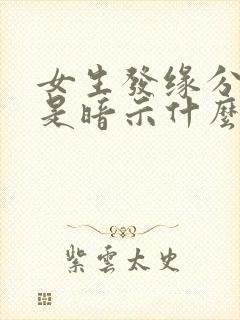 女生發缘分
是暗示什麼
紫雲太史